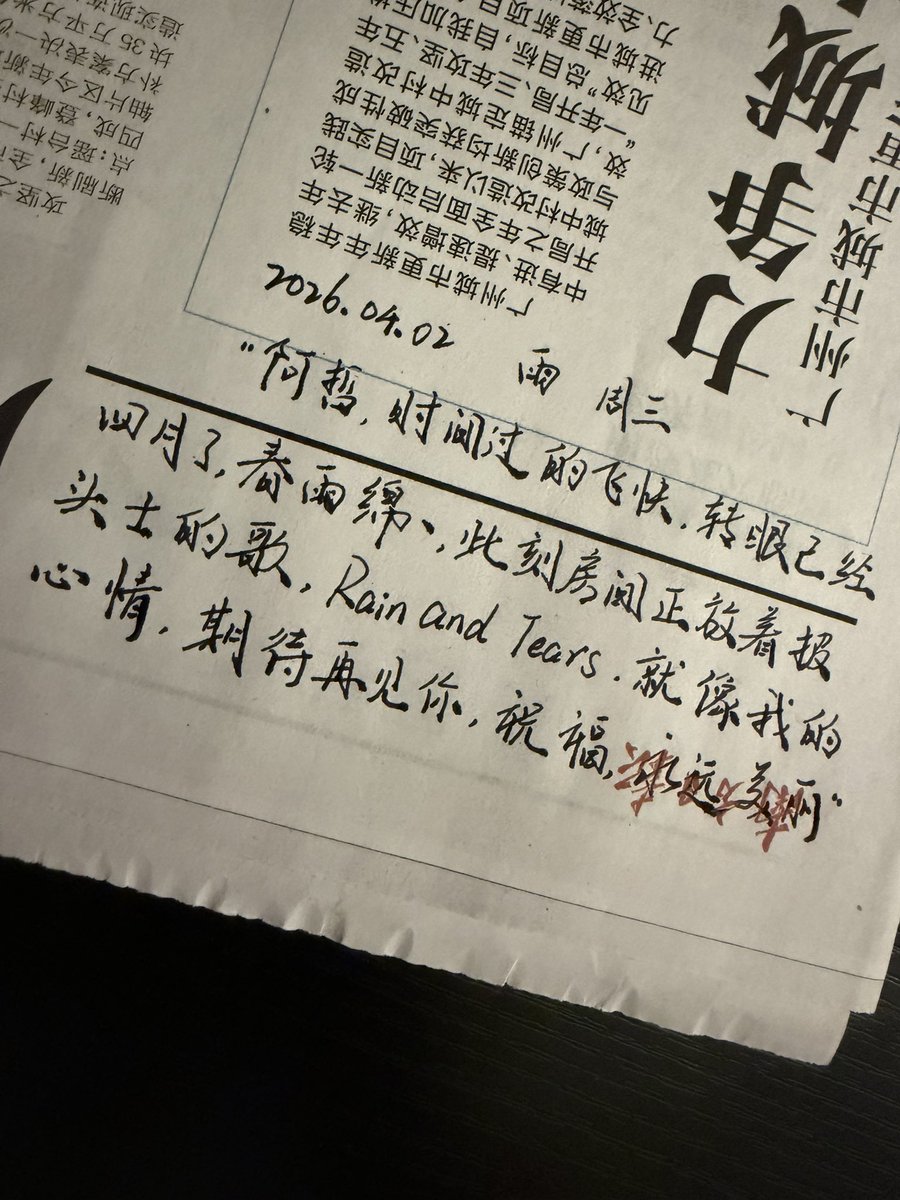 2026.04.02 雨 周三
"何哲,时间过的飞快.转眼已经
四月了,春雨绵、,此刻房间正放着披
头士的歌,Rain and Tears.就像我的
心情.期待再见你,祝福,永远
力争 城
广州市城市更
广州城市更新年年稳
中有进、提速增效,继去年
开局之年全面启动新一轮
城中村改造以来,项目实践
与政策创新均获突破性成
效,广州锚定城中村改造
“一年开局、三年攻坚、五年
见效”总目标,自我加压
进城市更新项目
力、全效落
攻坚之
断刷新,全
点:瑶台村一
四成,登峰村
轴片区今年新
补方案表决一
块35万平方米
造实现